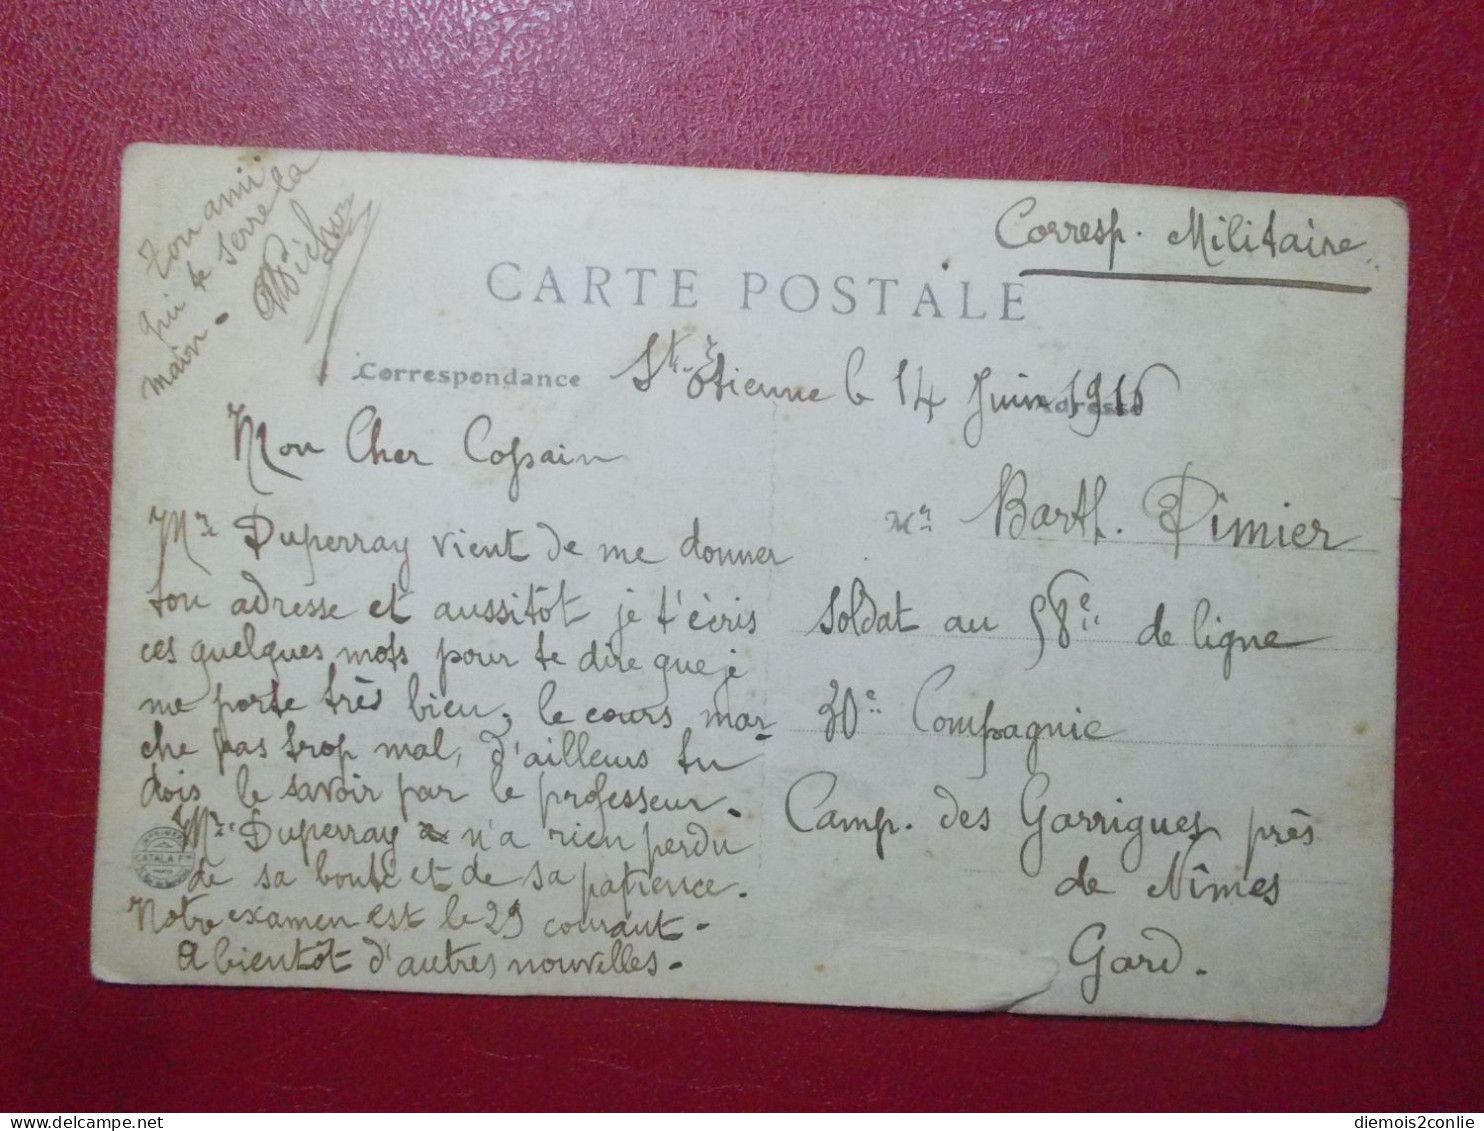 Corresp. Militaire
CARTE POSTALE
Correspondance
Adresse
St-Étienne le 14 Juin 1916
Mon Cher Copain
Mr Duperray vient de me donner
ton adresse et aussitôt je t'écris
ces quelques mots pour te dire que je
me porte très bien, le cours mar-
che pas trop mal, d'ailleurs tu
dois le savoir par le professeur.
Mr Duperray n'a rien perdu
de sa bonté et de sa patience.
Notre examen est le 29 courant -
A bientôt d'autres nouvelles.
Ton ami
qui te serre la
main.
Pichon
Mr Barth. Dimier
Soldat au 58e de ligne
30e Compagnie
Camp. des Garrigues près
de Nîmes
Gard.
diemois2conlie